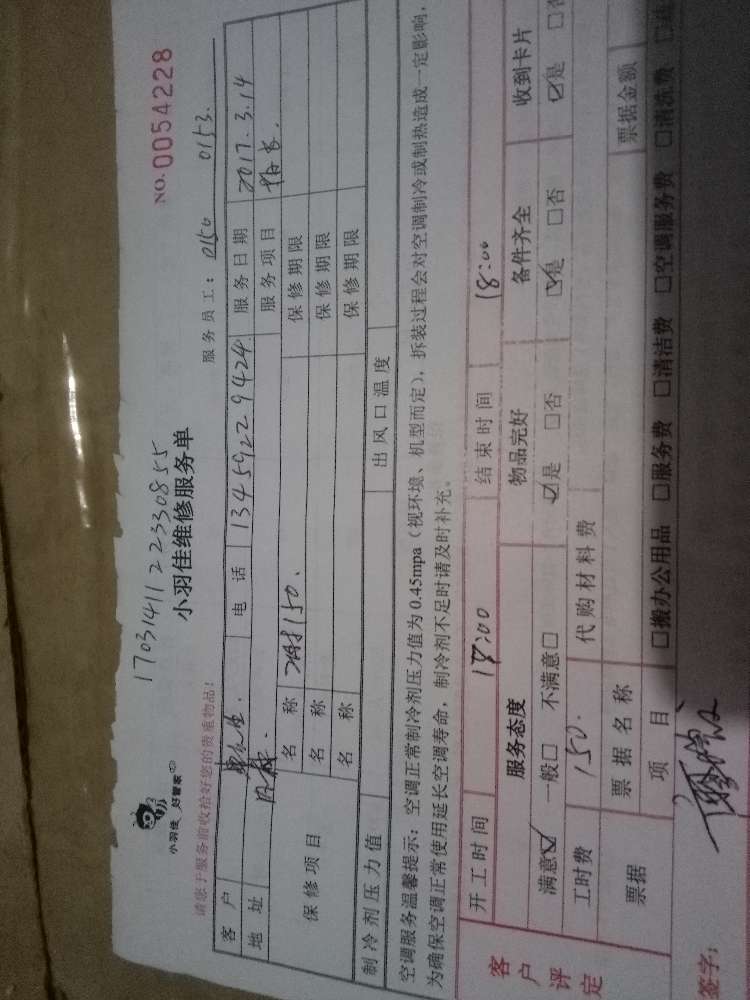 17031411 22330855
NO. 0054228
小羽佳维修服务单
小羽佳 好管家
请您于服务前收拾好您的贵重物品!
服务员工: 0150 0153.
客户 电话 13459229424. 服务日期 2017.3.14
地址 服务项目
保修项目 名称 150. 保修期限
名称 保修期限
名称 保修期限
制冷剂压力值 出风口温度
空调服务温馨提示:空调正常制冷剂压力值为0.45mpa(视环境、机型而定),拆装过程会对空调制冷或制热造成一定影响,
为确保空调正常使用延长空调寿命,制冷剂不足时请及时补充。
客户评定
开工时间 17:00 结束时间 18:00
服务态度 物品完好 备件齐全 收到卡片
满意☑ 一般□ 不满意□ ☑是 □否 ☑是 □否 ☑是 □否
工时费 150. 代购材料费
票据 票据名称 票据金额
项目 □搬办公用品 □服务费 □清洁费 □空调服务费 □清洗费
签字: